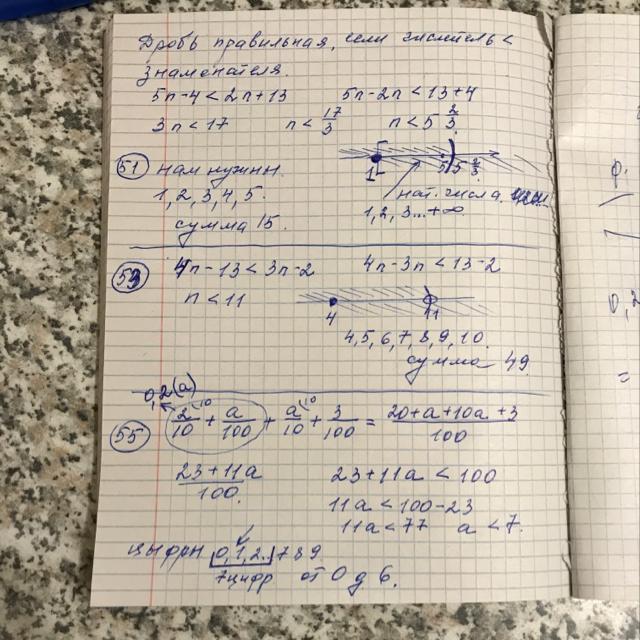 Дробь правильная, если числитель <
знаменателя.
5n-4<2n+13 5n-2n<13+4
3n<17 n<17/3 n<5 2/3
51 нам нужны
1 5 5 2/3
1,2,3,4,5. нат. числа
1,2,3...+∞
сумма 15.
53 4n-13<3n-2 4n-3n<13-2
n<11
4 11
4,5,6,7,8,9,10.
сумма 49
0,2(a)
55 2/10 + a/100 + a/10 + 3/100 = 20+a+10a+3/100
23+11a/100. 23+11a<100
11a<100-23
11a<77 a<7.
цифры 0,1,2..789
7цифр от 0 д 6.
φ.
0,2
=